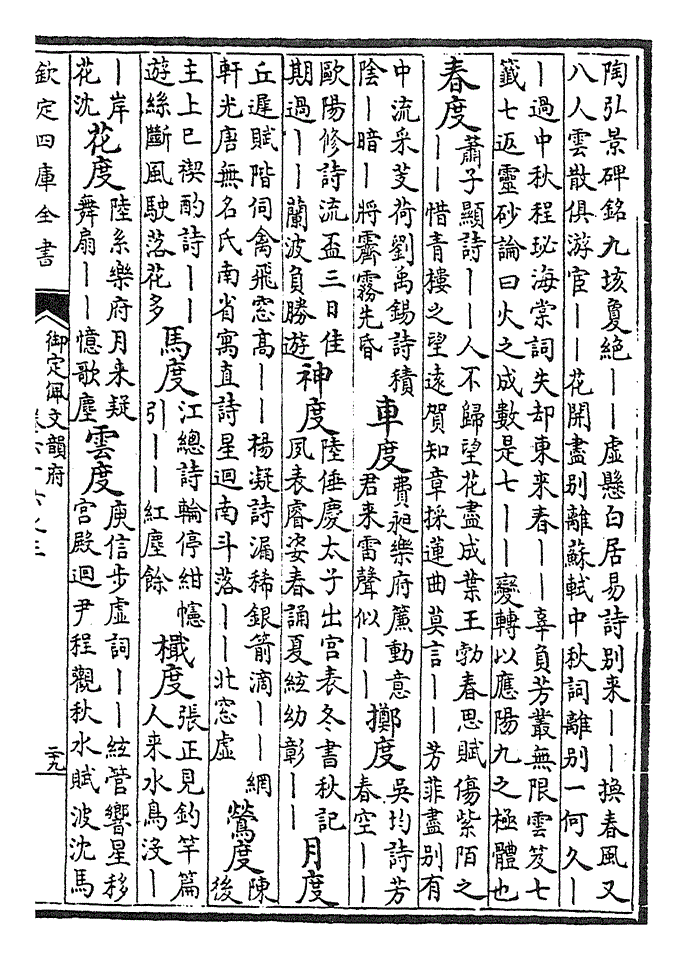 陶弘景碑銘九垓敻絕||虛懸白居易詩别来||換春風又
八人雲散俱游宦||花開盡别離蘇軾中秋詞離别一何久|
|過中秋程珌海棠詞失却東来春||辜負芳叢無限雲笈七
籤七返靈砂論曰火之成數是七||變轉以應陽九之極體也
春度
蕭子顯詩||人不歸望花盡成葉王勃春思賦傷紫陌之
||惜青樓之望遠賀知章採蓮曲莫言||芳菲盡别有
中流采芰荷劉禹錫詩積
陰|暗|將霽霧先昏
車度
費昶樂府簾動意
君来雷聲似||
擲度
吳均詩芳
春空||
歐陽修詩流盃三日佳
期過||蘭波負勝遊
神度
陸倕慶太子出宫表冬書秋記
夙表睿姿春誦夏絃幼彰||
月度
丘遲賦階伺禽飛窓髙||楊凝詩漏稀銀箭滴||網
軒光唐無名氏南省寓直詩星迴南斗落||北窓虛
鶯度
陳
後
主上巳禊酌詩||
遊絲斷風駛落花多
馬度
江總詩輪停紺幰
引||紅塵餘
檝度
張正見釣竿篇
人来水鳥没|
|岸
花沈
花度
陸系樂府月来疑
舞扇||憶歌塵
雲度
庾信步虛詞||絃管響星移
宫殿迴尹程觀秋水賦波沈馬
欽定四庫全書
御定佩文韻府
卷六十六之三
二九